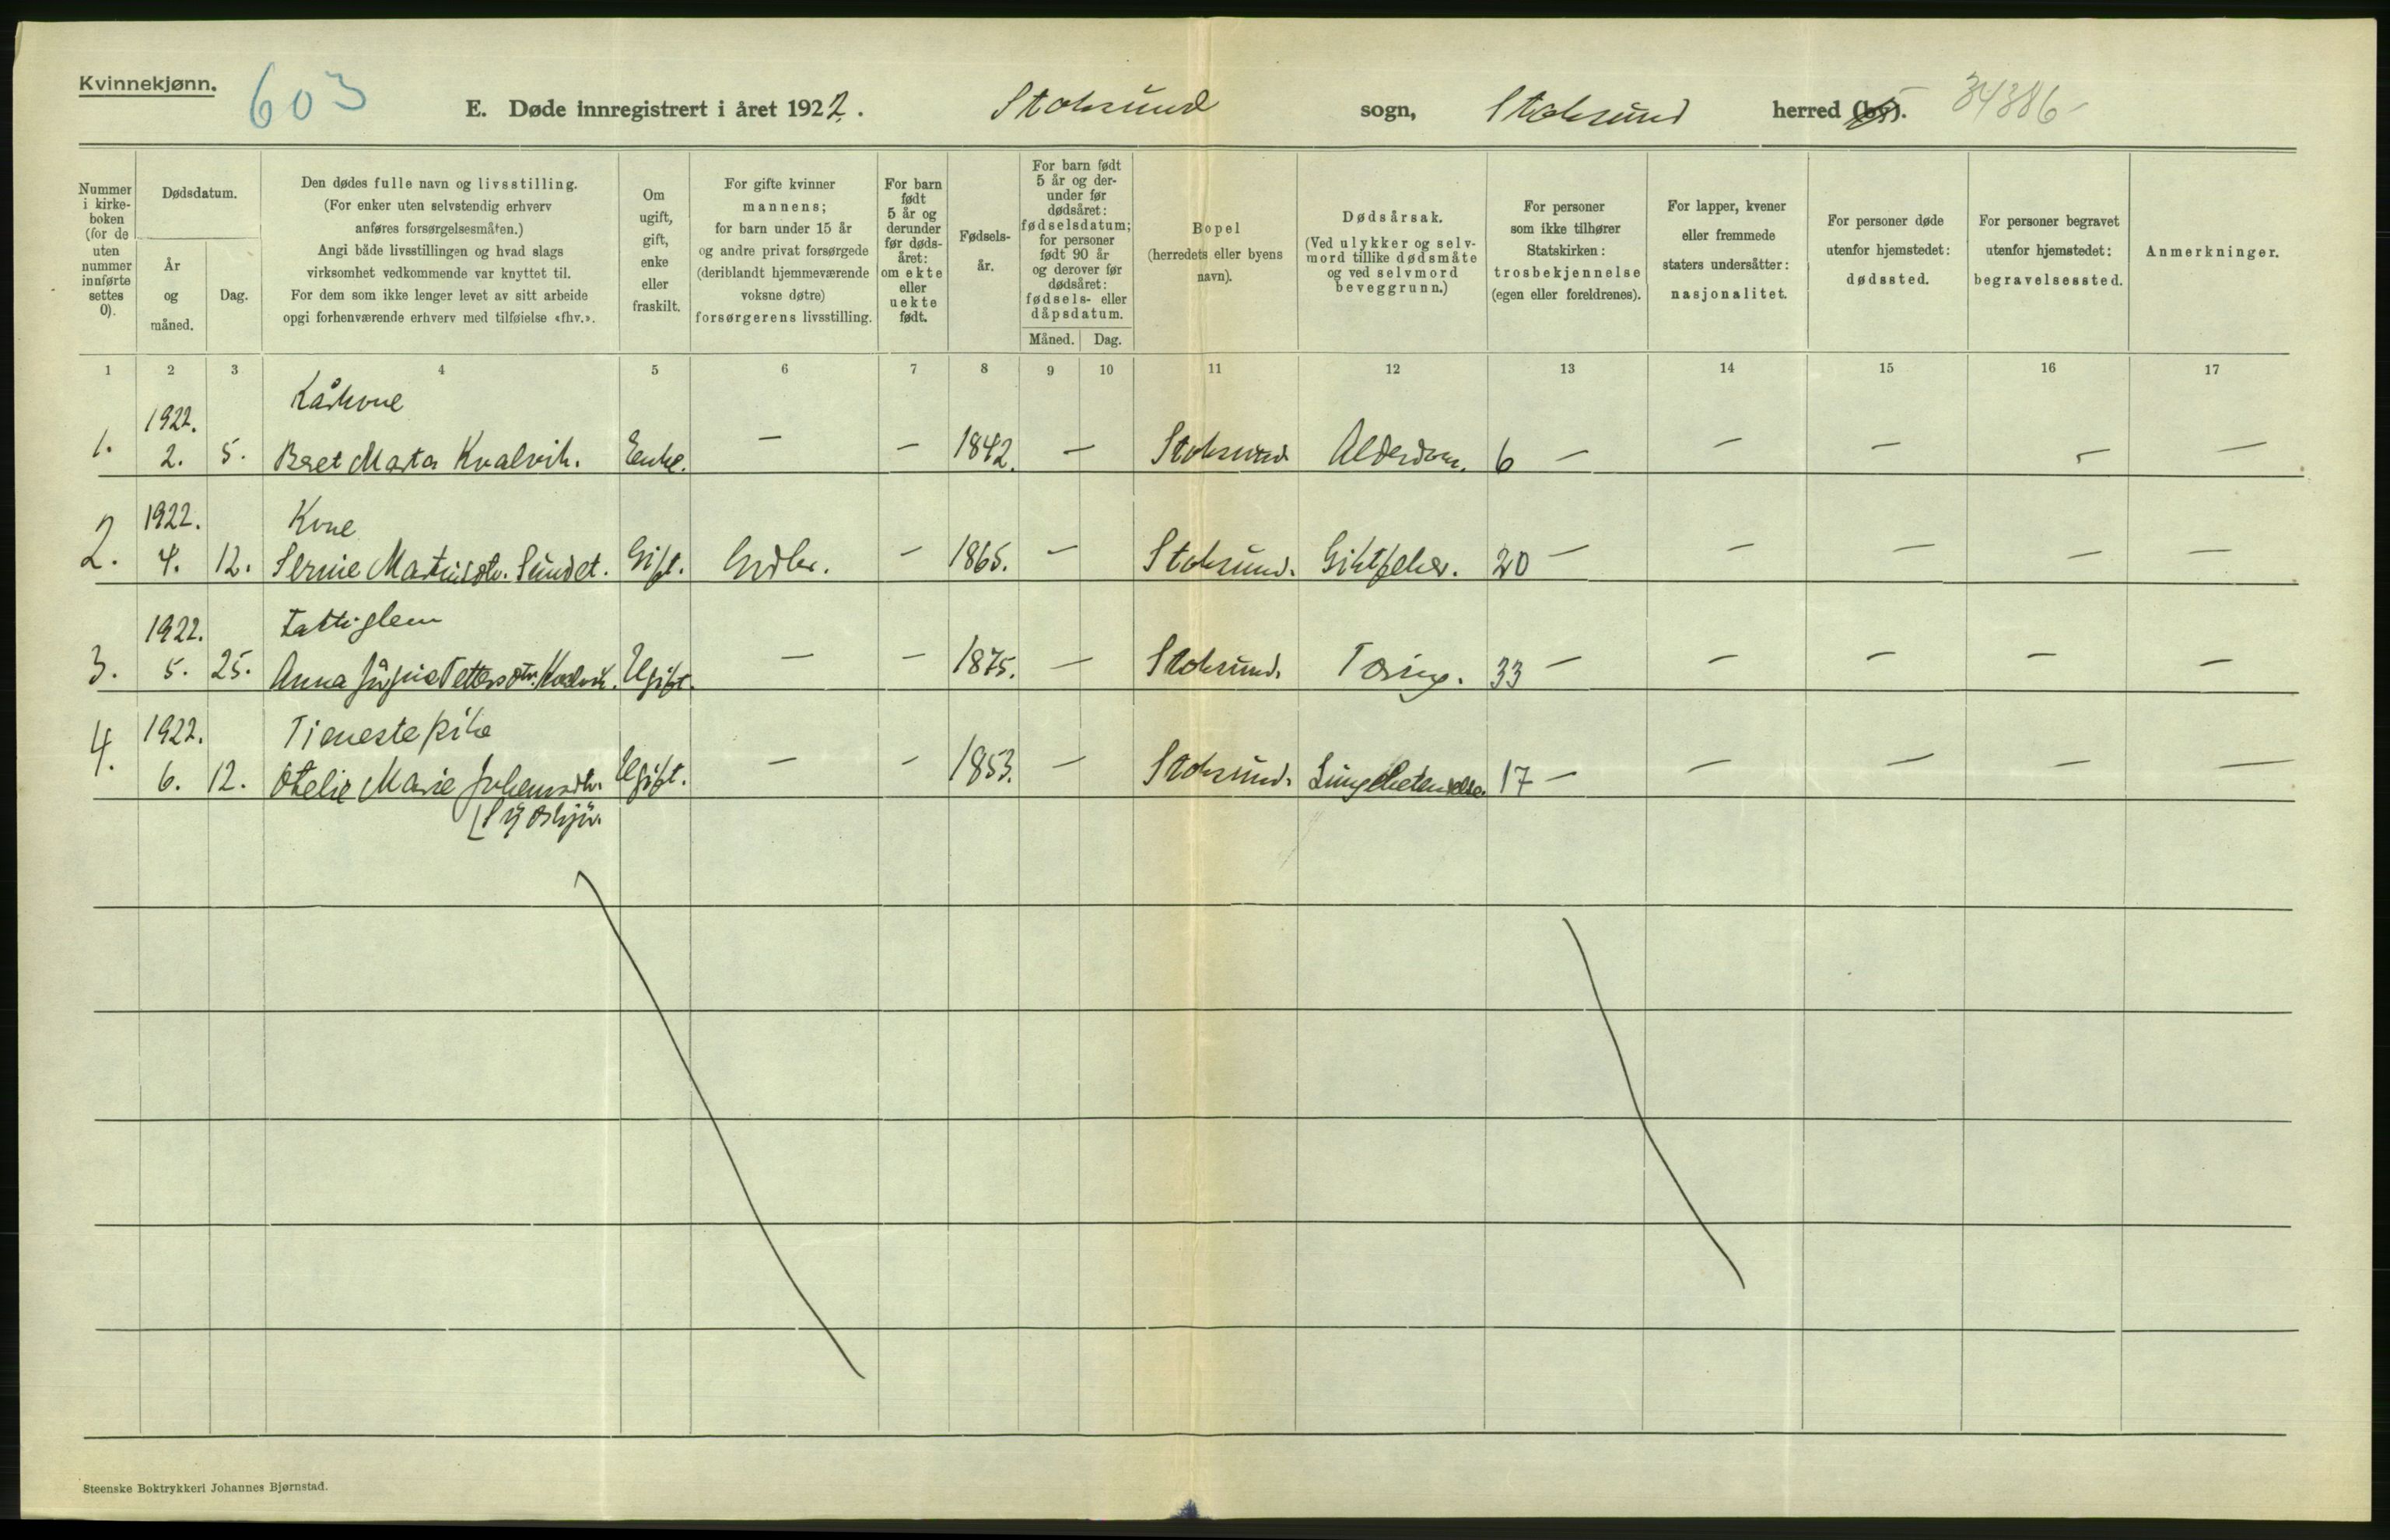 Kvinnekjønn.
603
E. Døde innregistrert i året 1922. Stoksund sogn, Stoksund herred (by). 34386-
Nummer i kirke- boken (for de uten nummer innførte settes 0).
Dødsdatum.
År og måned.
Dag.
Den dødes fulle navn og livsstilling.
(For enker uten selvstendig erhverv
anføres forsørgelsesmåten.)
Angi både livsstillingen og hvad slags
virksomhet vedkommende var knyttet til.
For dem som ikke lenger levet av sitt arbeide
opgi forhenværende erhverv med tilføielse «fhv.».
Om
ugift,
gift,
enke
eller
fraskilt.
For gifte kvinner
mannens;
for barn under 15 år
og andre privat forsørgede
(deriblandt hjemmeværende
voksne døtre)
forsørgerens livsstilling.
For barn
født
5 år og
derunder
før døds-
året:
om ekte
eller
uekte
født.
Fødsels-
år.
For barn født
5 år og der-
under før
dødsåret:
fødselsdatum;
for personer
født 90 år
og derover før
dødsåret:
fødsels- eller
dåpsdatum.
Måned. Dag.
Bopel
(herredets eller byens
navn).
Dødsårsak.
(Ved ulykker og selv-
mord tillike dødsmåte
og ved selvmord
beveggrunn.)
For personer
som ikke tilhører
Statskirken:
trosbekjennelse
(egen eller foreldrenes).
For lapper, kvener
eller fremmede
staters undersåtter:
nasjonalitet.
For personer døde
utenfor hjemstedet:
dødssted.
For personer begravet
utenfor hjemstedet:
begravelsessted.
Anmerkninger.
1 2 3 4 5 6 7 8 9 10 11 12 13 14 15 16 17
1922. Kårkone
1. 2. 5. Beret Marta Kvalvik. Enke. — — 1842. — Stoksund Alderdom. 6 — — — — —
1922. Kone
2. 4. 12. Sundet. Gift. — 1865. — Stoksund. Giktfeber. 20 — — — — —
1922. Fattiglem
3. 5. 25. Anna Kvalvik. Ugift. — — 1875. — Stoksund. Tæring. 33 — — — — —
1922. Tieneste pike
4. 6. 12. Otelie Marie Johansdtr. Ugift. — — 1853. — Stoksund. Lungebetendelse. 17 — — — — —
Steenske Boktrykkeri Johannes Bjørnstad.